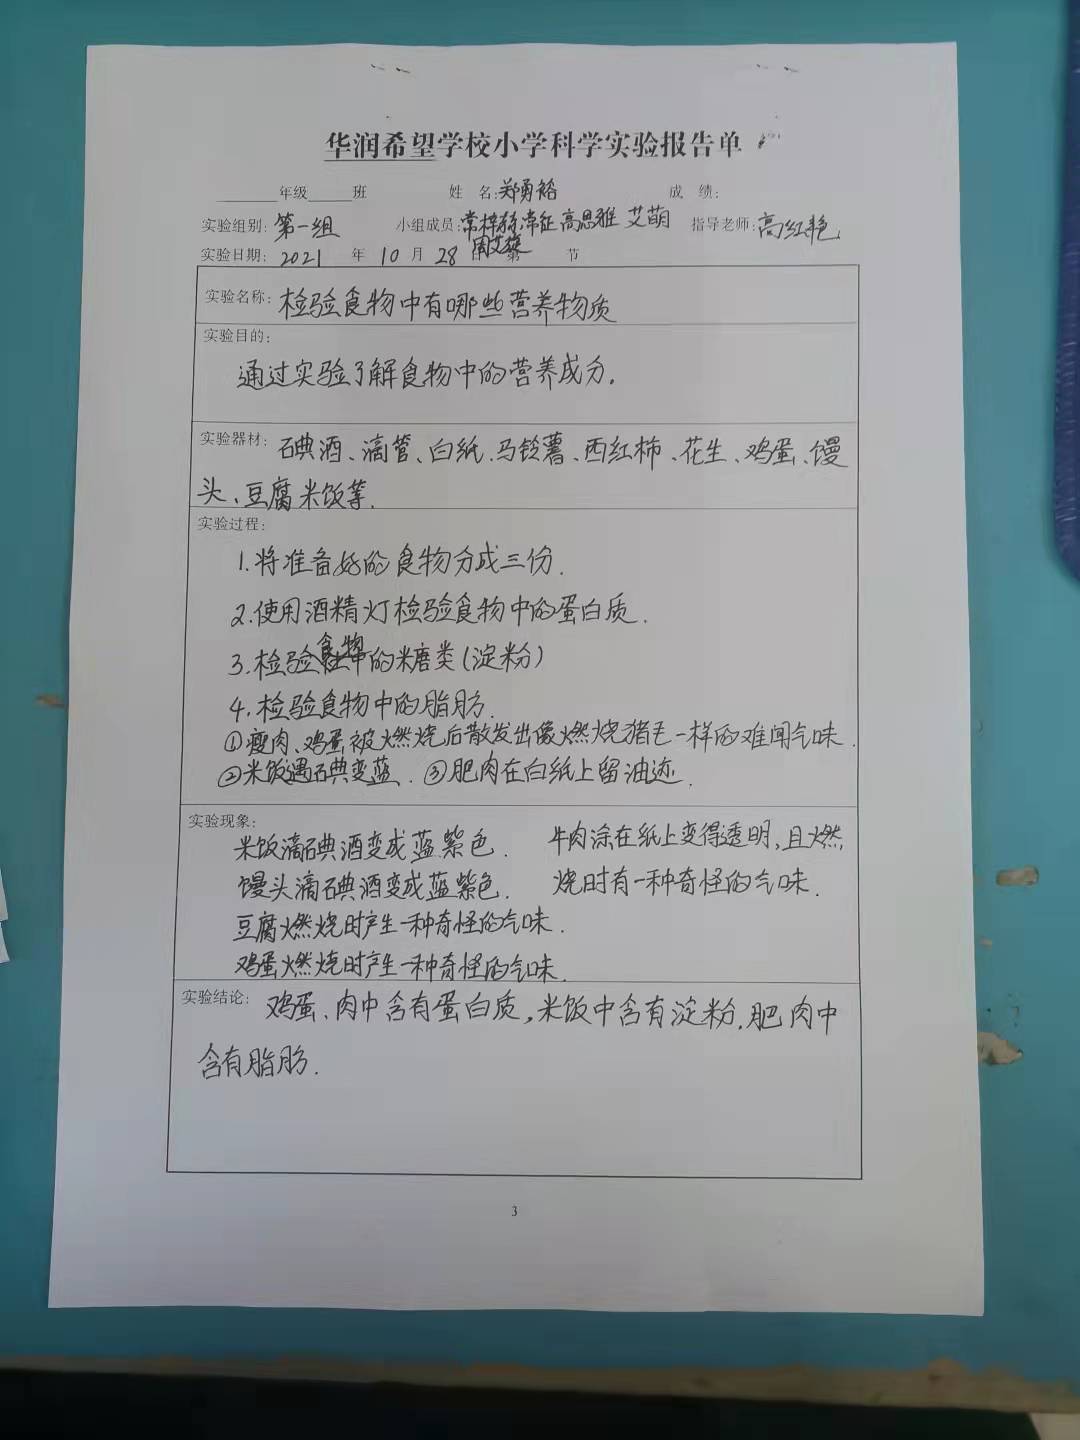 华润希望学校小学科学实验报告单
年级 班 姓 名:郑勇裕 成 绩:
实验组别:第一组 小组成员:常梓 常征 高思雅 艾萌 指导老师:高红艳
周艾
实验日期:2021 年 10 月 28 日 第 节
实验名称:检验食物中有哪些营养物质
实验目的:
通过实验了解食物中的营养成分.
实验器材:碘酒、滴管、白纸.马铃薯、西红柿、花生、鸡蛋、馒
头、豆腐米饭等.
实验过程:
1.将准备好的食物分成三份.
2.使用酒精灯检验食物中的蛋白质.
3.检验食物中的糖类(淀粉)
4.检验食物中的脂肪.
①瘦肉、鸡蛋被燃烧后散发出像燃烧猪毛一样的难闻气味.
②米饭遇碘变蓝. ③肥肉在白纸上留油迹.
实验现象:
米饭滴碘酒变成蓝紫色. 牛肉涂在纸上变得透明,且燃
馒头滴碘酒变成蓝紫色. 烧时有一种奇怪的气味.
豆腐燃烧时产生一种奇怪的气味.
鸡蛋燃烧时产生一种奇怪的气味.
实验结论: 鸡蛋、肉中含有蛋白质,米饭中含有淀粉.肥肉中
含有脂肪.
3